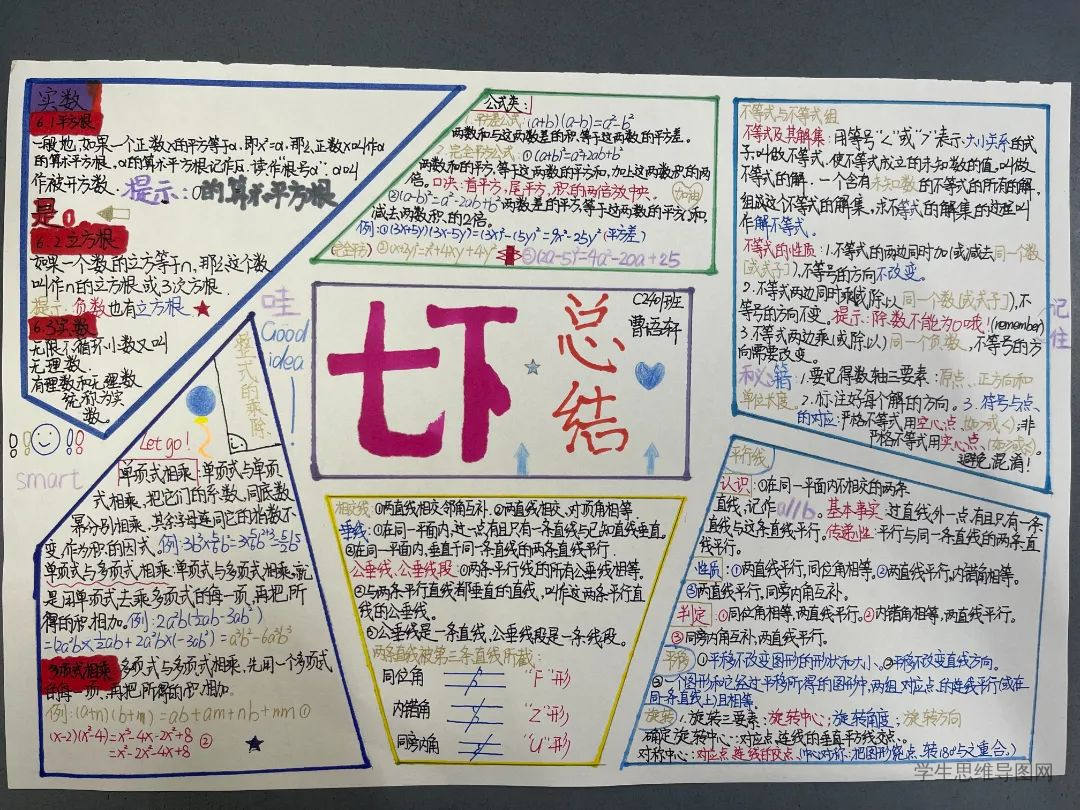 实数
6.1平方根
一般地,如果一个正数x的平方等于a,即x²=a,那么正数x叫作a
的算术平方根,a的算术平方根记作√a,读作"根号a",a叫
作被开方数.
提示:0的算术平方根
是0
6.2立方根
如果一个数的立方等于n,那么这个数
叫作n的立方根或3次方根.
提示:负数也有立方根
6.3实数
无限不循环小数又叫
无理数.
有理数和无理数
统称为实
数.
公式类:
1.平方差公式:(a+b)(a-b)=a²-b²
两数和与这两数差的积,等于这两数的平方差.
2.完全平方公式:①(a+b)²=a²+2ab+b²
两数和的平方,等于这两数的平方和,加上两数积的两
倍。口决:首平方,尾平方,积的两倍放中央.
加油
②(a-b)²=a²-2ab+b²两数差的平方等于这两数的平方和,
减去两数积的2倍。
例:①(3x+5y)(3x-5y)=(3x)²-(5y)²=9x²-25y²(平方差)
(完全平方)②(x+2y)²=x²+4xy+4y²
③(2a-5)²=4a²-20a+25
不等式与不等式组
不等式及其解集:用等号"<"或">"表示大小关系的式
子,叫做不等式,使不等式成立的未知数的值,叫做
不等式的解.一个含有未知数的不等式的所有的解,
组成这个不等式的解集,求不等式的解集的过程叫
作解不等式。
不等式的性质:1.不等式的两边同时加(或减去同一个数
[或式子]),不等号的方向不改变。
2.不等式两边同时乘或除以同一个数[或式子]),不
等号的方向不变。提示:除数不能为0哦!(remember)
3.不等式两边乘(或除以)同一个负数,不等号的方
向需要改变。
记住
秘籍:1.要记得数轴三要素:原点、正方向和
单位长度。2.标注好每个解的方向。3.符号与点
的对应:严格不等式用空心点(如>或<);非
严格不等式用实心点(如≥或≤)
避免混淆!
七下
总结
C2401班
曹语轩
哇
Good
idea
!
整式的乘除
Let go!
smart
单项式相乘:单项式与单项
式相乘,把它们的系数、同底数
幂分别相乘,其余字母连同它的指数不
变,作为积的因式。
单项式与多项式相乘:单项式与多项式相乘,就
是用单项式去乘多项式的每一项,再把所
得的积相加。
多项式相乘:多项式与多项式相乘,先用一个多项式
的每一项,再把所得的积相加。
例:(a+n)(b+m)=ab+am+nb+nm ①
(x-2)(x²-4)=x³-4x-2x²+8 ②
=x³-2x²-4x+8
相交线:①两直线相交邻角互补.②两直线相交,对顶角相等.
垂线:①在同一平面内,过一点有且只有一条直线与已知直线垂直.
②在同一平面内,垂直于同一条直线的两条直线平行.
公垂线、公垂线段:①两条平行线的所有公垂线相等.
②与两条平行直线都垂直的直线,叫作这两条平行直
线的公垂线.
③公垂线是一条直线,公垂线段是一条线段.
两条直线被第三条直线所截:
同位角 "F"形
内错角 "Z"形
同旁内角 "U"形
平行线
认识:①在同一平面内不相交的两条
直线,记作a//b.基本事实:过直线外一点,有且只有一条
直线与这条直线平行.传递性:平行与同一条直线的两条直
线平行.
性质:①两直线平行,同位角相等。②两直线平行,内错角相等。
③两直线平行,同旁内角互补。
判定:①同位角相等,两直线平行。②内错角相等,两直线平行。
③同旁内角互补,两直线平行。
平移:①平移不改变图形的形状和大小。②平移不改变直线方向。
③一个图形和它经过平移所得的图形中,两组对应点的连线平行(或在
同一条直线上)且相等。
旋转:1.旋转三要素:旋转中心;旋转角度;旋转方向
确定旋转中心:对应点连线的垂直平线交点。
对称中心:对应点连线的交点。(中心对称:把图形绕点转180°与之重合。)
学生思维导图网